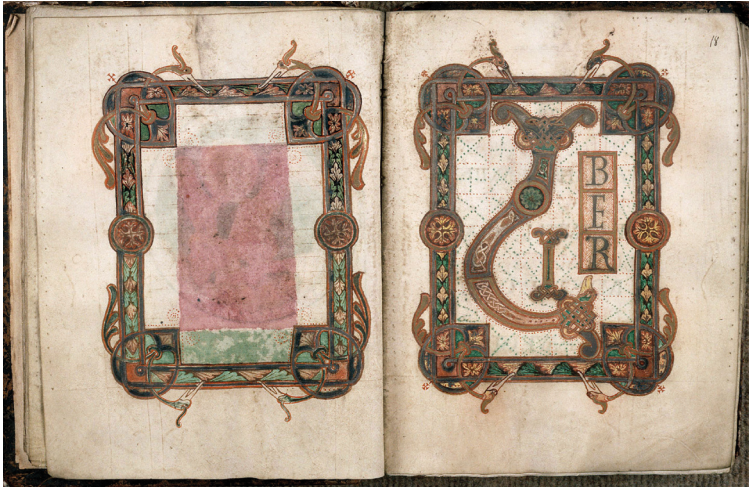 18
LIBER